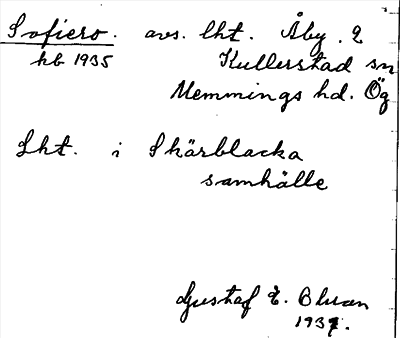 Sofiero. avs. lht. Åby. 2
hb 1935 Kullerstad sn
Memmings hd. Ög
Lht. i Skärblacka
samhälle
Gustaf E. Bluan
1937.